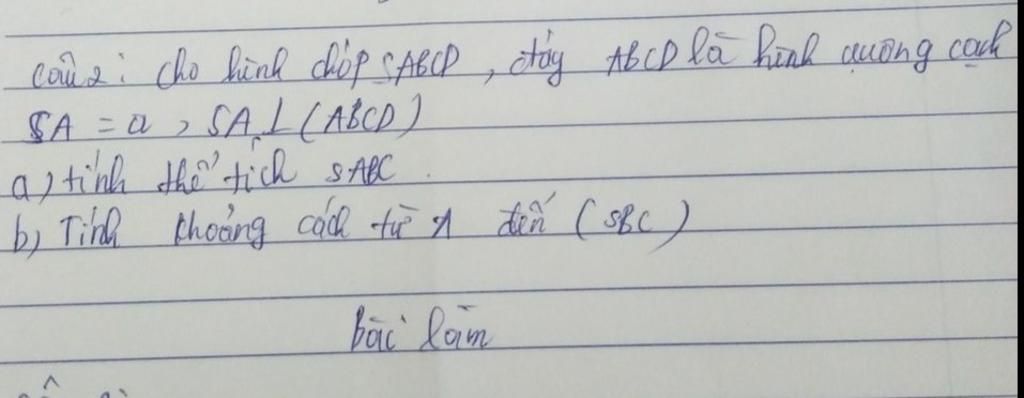 Câu 2: Cho hình chóp SABCD, đáy ABCD là hình vuông cạnh
SA = a, SA ⊥ (ABCD)
a) tính thể tích SABC.
b) Tính khoảng cách từ A đến (SBC)
Bài làm